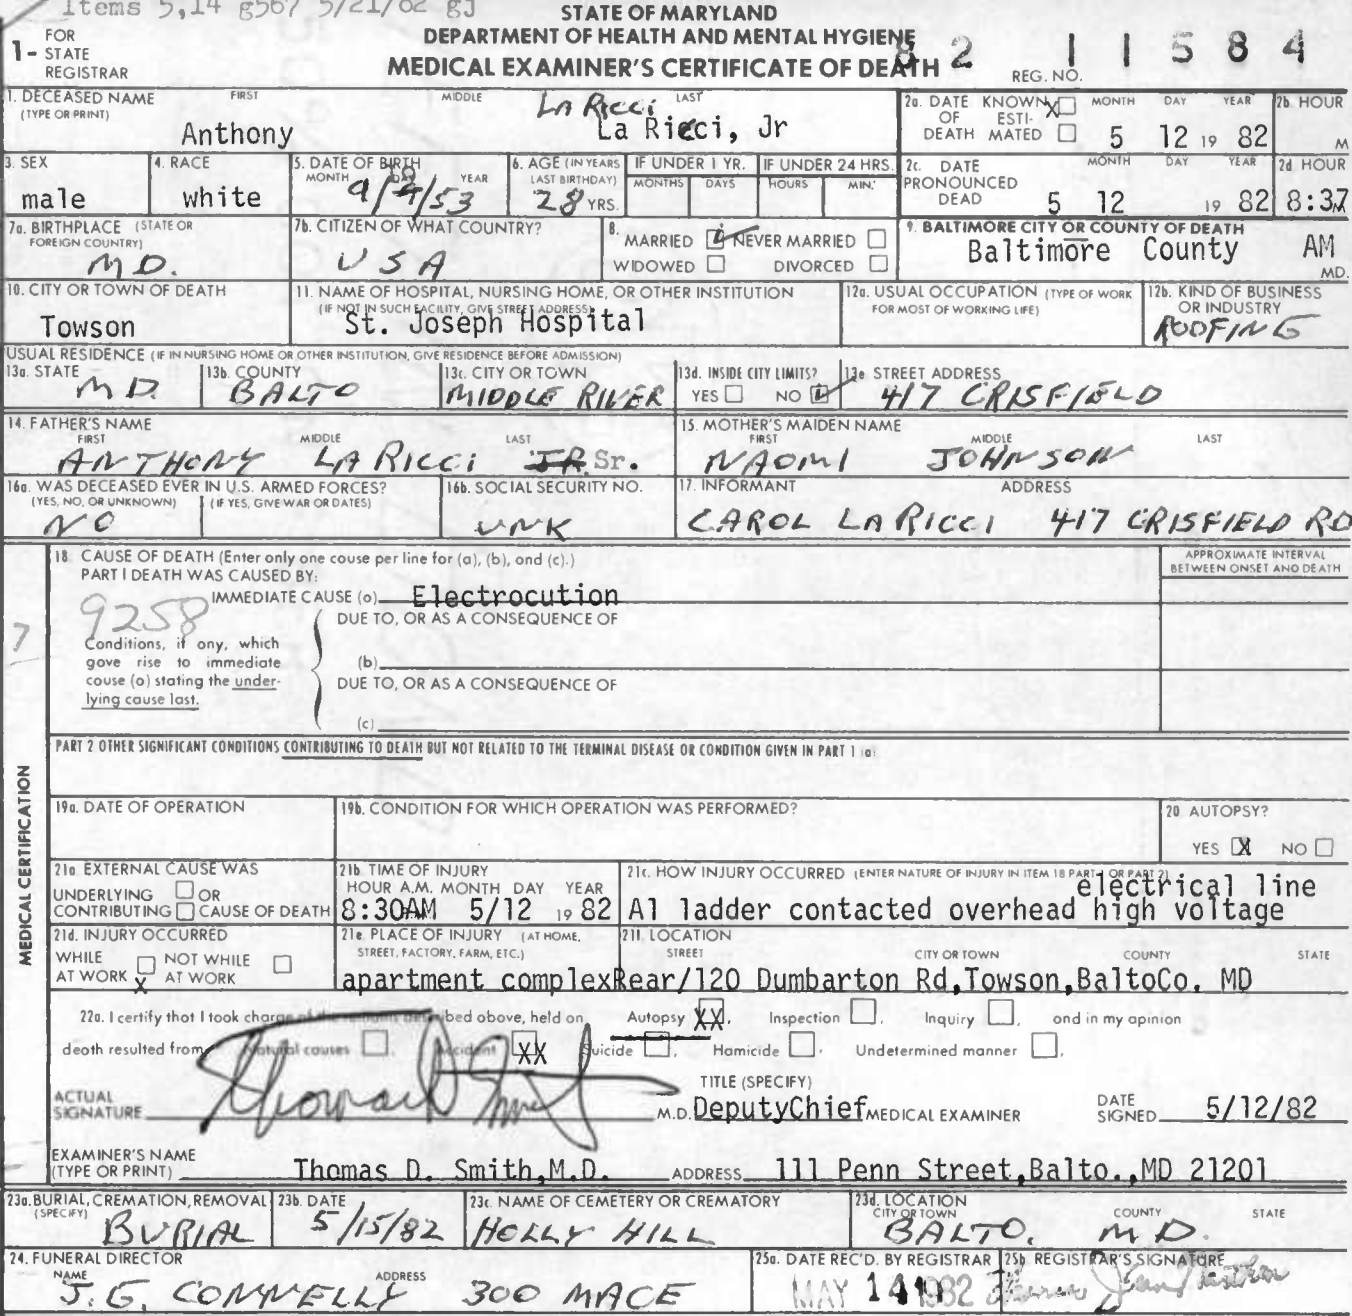 Items 5,14 g567 5/21/82 gj
STATE OF MARYLAND
DEPARTMENT OF HEALTH AND MENTAL HYGIENE
MEDICAL EXAMINER'S CERTIFICATE OF DEATH
1- FOR STATE REGISTRAR
REG. NO. 82 11584
1. DECEASED NAME (TYPE OR PRINT) FIRST MIDDLE LAST
LA RICCI
Anthony La Ricci, Jr
2a. DATE OF DEATH KNOWN X ESTIMATED MONTH DAY YEAR 5 12 19 82
2b. HOUR M
3. SEX male
4. RACE white
5. DATE OF BIRTH MONTH YEAR 9/ /53
6. AGE (IN YEARS LAST BIRTHDAY) 28 YRS.
IF UNDER 1 YR. MONTHS DAYS
IF UNDER 24 HRS. HOURS MIN.
2c. DATE PRONOUNCED DEAD MONTH DAY YEAR 5 12 19 82
2d. HOUR 8:37 M AM
7a. BIRTHPLACE (STATE OR FOREIGN COUNTRY) MD.
7b. CITIZEN OF WHAT COUNTRY? USA
8. MARRIED NEVER MARRIED
WIDOWED DIVORCED
9. BALTIMORE CITY OR COUNTY OF DEATH
Baltimore County MD.
10. CITY OR TOWN OF DEATH Towson
11. NAME OF HOSPITAL, NURSING HOME, OR OTHER INSTITUTION
(IF NOT IN SUCH FACILITY, GIVE STREET ADDRESS)
St. Joseph Hospital
12a. USUAL OCCUPATION (TYPE OF WORK FOR MOST OF WORKING LIFE)
12b. KIND OF BUSINESS OR INDUSTRY ROOFING
USUAL RESIDENCE (IF IN NURSING HOME OR OTHER INSTITUTION, GIVE RESIDENCE BEFORE ADMISSION)
13a. STATE MD.
13b. COUNTY BALTO
13c. CITY OR TOWN MIDDLE RIVER
13d. INSIDE CITY LIMITS? YES NO
13e STREET ADDRESS 417 CRISFIELD
14. FATHER'S NAME FIRST MIDDLE LAST
ANTHONY LA RICCI JR. Sr.
15. MOTHER'S MAIDEN NAME FIRST MIDDLE LAST
NAOMI JOHNSON
16a. WAS DECEASED EVER IN U.S. ARMED FORCES?
(YES, NO, OR UNKNOWN) (IF YES, GIVE WAR OR DATES)
NO
16b. SOCIAL SECURITY NO. UNK
17. INFORMANT ADDRESS
CAROL LA RICCI 417 CRISFIELD RD
MEDICAL CERTIFICATION
18. CAUSE OF DEATH (Enter only one cause per line for (a), (b), and (c).)
APPROXIMATE INTERVAL BETWEEN ONSET AND DEATH
PART I DEATH WAS CAUSED BY:
IMMEDIATE CAUSE (a) Electrocution
9258
7
DUE TO, OR AS A CONSEQUENCE OF
Conditions, if any, which
gave rise to immediate
cause (a) stating the under-
lying cause last.
(b)
DUE TO, OR AS A CONSEQUENCE OF
(c)
PART 2 OTHER SIGNIFICANT CONDITIONS CONTRIBUTING TO DEATH BUT NOT RELATED TO THE TERMINAL DISEASE OR CONDITION GIVEN IN PART 1 (a)
19a. DATE OF OPERATION
19b. CONDITION FOR WHICH OPERATION WAS PERFORMED?
20 AUTOPSY? YES X NO
21a EXTERNAL CAUSE WAS
UNDERLYING OR
CONTRIBUTING CAUSE OF DEATH
21b. TIME OF INJURY
HOUR A.M. MONTH DAY YEAR
8:30AM 5/12 19 82
21c. HOW INJURY OCCURRED (ENTER NATURE OF INJURY IN ITEM 18 PART 1 OR PART 2)
electrical line
Al ladder contacted overhead high voltage
21d. INJURY OCCURRED
WHILE AT WORK X NOT WHILE AT WORK
21e. PLACE OF INJURY (AT HOME, STREET, FACTORY, FARM, ETC.)
apartment complex
21f. LOCATION STREET CITY OR TOWN COUNTY STATE
Rear/120 Dumbarton Rd,Towson,BaltoCo. MD
22a. I certify that I took charge of the remains described above, held on Autopsy XX, Inspection , Inquiry , and in my opinion
death resulted from Natural causes , Accident XX Suicide , Homicide , Undetermined manner .
ACTUAL SIGNATURE M.D.
TITLE (SPECIFY)
DeputyChief MEDICAL EXAMINER
DATE SIGNED 5/12/82
EXAMINER'S NAME (TYPE OR PRINT) Thomas D. Smith,M.D. ADDRESS 111 Penn Street,Balto.,MD 21201
23a. BURIAL, CREMATION, REMOVAL (SPECIFY) BURIAL
23b. DATE 5/15/82
23c. NAME OF CEMETERY OR CREMATORY HOLLY HILL
23d. LOCATION CITY OR TOWN COUNTY STATE
BALTO. MD.
24. FUNERAL DIRECTOR
NAME ADDRESS
J.G. CONNELLY 300 MACE
25a. DATE REC'D. BY REGISTRAR MAY 14 1982
25b. REGISTRAR'S SIGNATURE